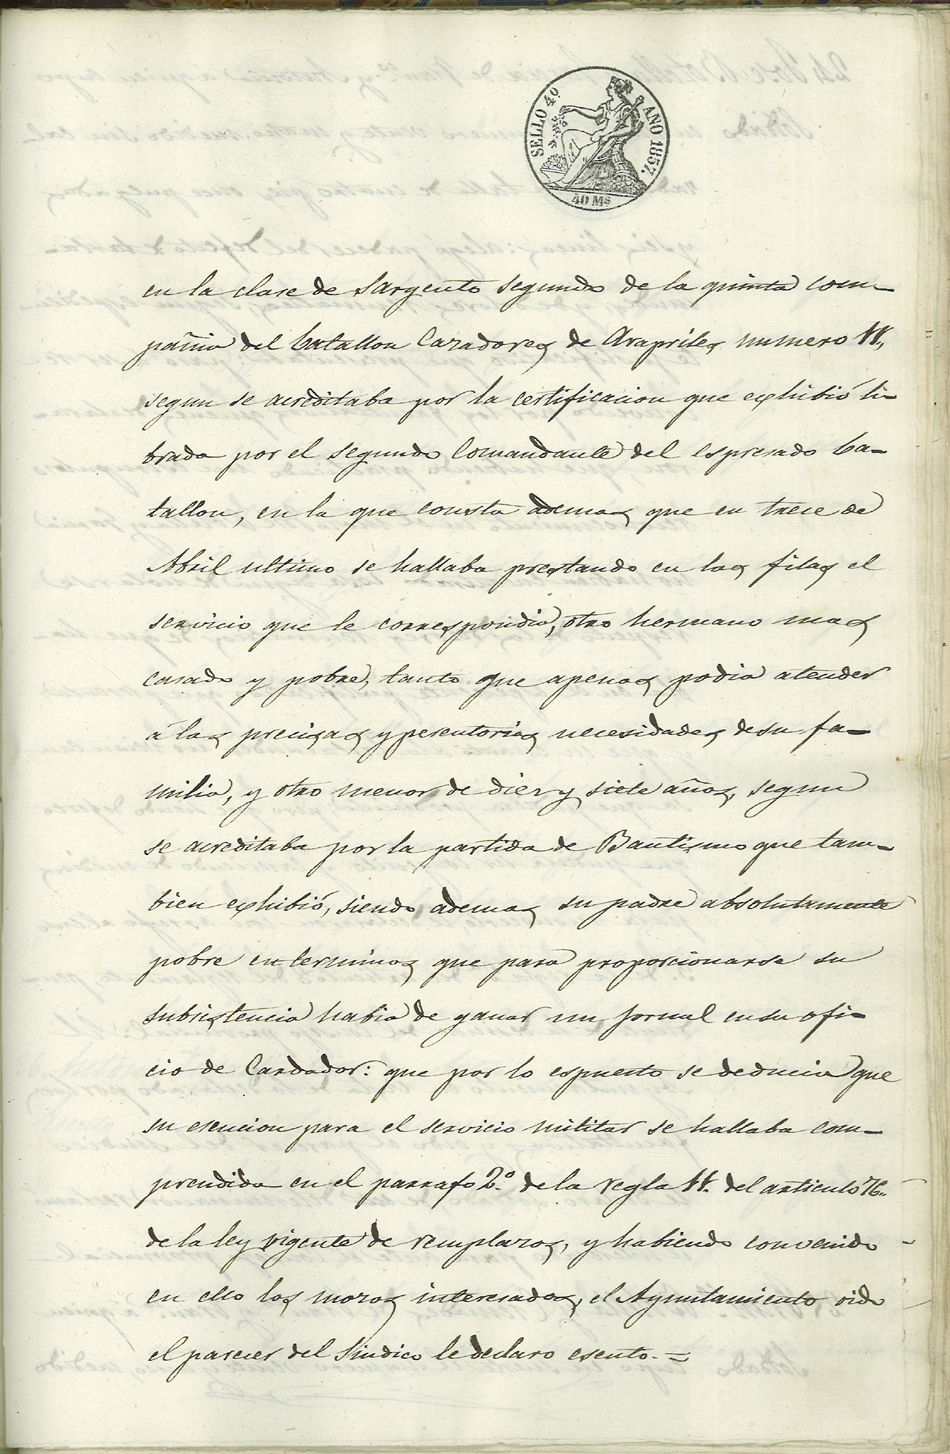 SELLO 4º AÑO 1857.
40 Ms
en la clase de Sargento segundo de la quinta com-
pañia del batallon Cazadores de Arapiles numero 11,
segun se acreditaba por la certificacion que exhibió li-
brada por el segundo Comandante del espresado ba-
tallon, en la que consta ademas que en trece de
Abril ultimo se hallaba prestando en las filas el
servicio que le correspondia, otro hermano mas
casado y pobre, tanto que apenas podia atender
á las precisas y perentorias necesidades de su fa-
milia, y otro menor de diez y siete años, segun
se acreditaba por la partida de Bautismo que tam-
bien exhibió, siendo ademas su padre absolutamente
pobre en terminos que para proporcionarse su
subsistencia habia de ganar un jornal en su ofi-
cio de Cardador: que por lo espuesto se deducia que
su esencion para el servicio militar se hallaba com-
prendida en el parrafo 2.º de la regla 11. del articulo 76.
de la ley vigente de remplazos, y habiendo convenido
en ello los mozos interesados, el Ayuntamiento oido
el parecer del Sindico le declaro esento.=